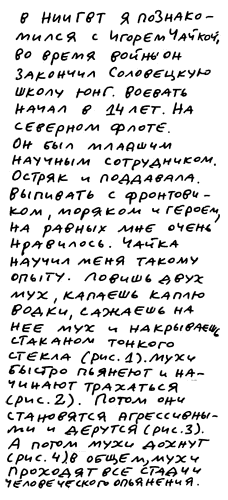 В НИИГВТ Я ПОЗНАКО-
МИЛСЯ С ИГОРЕМ ЧАЙКОЙ,
ВО ВРЕМЯ ВОЙНЫ ОН
ЗАКОНЧИЛ СОЛОВЕЦКУЮ
ШКОЛУ ЮНГ. ВОЕВАТЬ
НАЧАЛ В 14 ЛЕТ. НА
СЕВЕРНОМ ФЛОТЕ.
ОН БЫЛ МЛАДШИМ
НАУЧНЫМ СОТРУДНИКОМ.
ОСТРЯК И ПОДДАВАЛА.
ВЫПИВАТЬ С ФРОНТОВИ-
КОМ, МОРЯКОМ И ГЕРОЕМ,
НА РАВНЫХ МНЕ ОЧЕНЬ
НРАВИЛОСЬ. ЧАЙКА
НАУЧИЛ МЕНЯ ТАКОМУ
ОПЫТУ. ЛОВИШЬ ДВУХ
МУХ, КАПАЕШЬ КАПЛЮ
ВОДКИ, САЖАЕШЬ НА
НЕЕ МУХ И НАКРЫВАЕШЬ
СТАКАНОМ ТОНКОГО
СТЕКЛА (РИС.1). МУХИ
БЫСТРО ПЬЯНЕЮТ И НА-
ЧИНАЮТ ТРАХАТЬСЯ
(РИС.2). ПОТОМ ОНИ
СТАНОВЯТСЯ АГРЕССИВНЫ-
МИ И ДЕРУТСЯ (РИС.3).
А ПОТОМ МУХИ ДОХНУТ
(РИС.4) В ОБЩЕМ, МУХИ
ПРОХОДЯТ ВСЕ СТАДИИ
ЧЕЛОВЕЧЕСКОГО ОПЬЯНЕНИЯ.